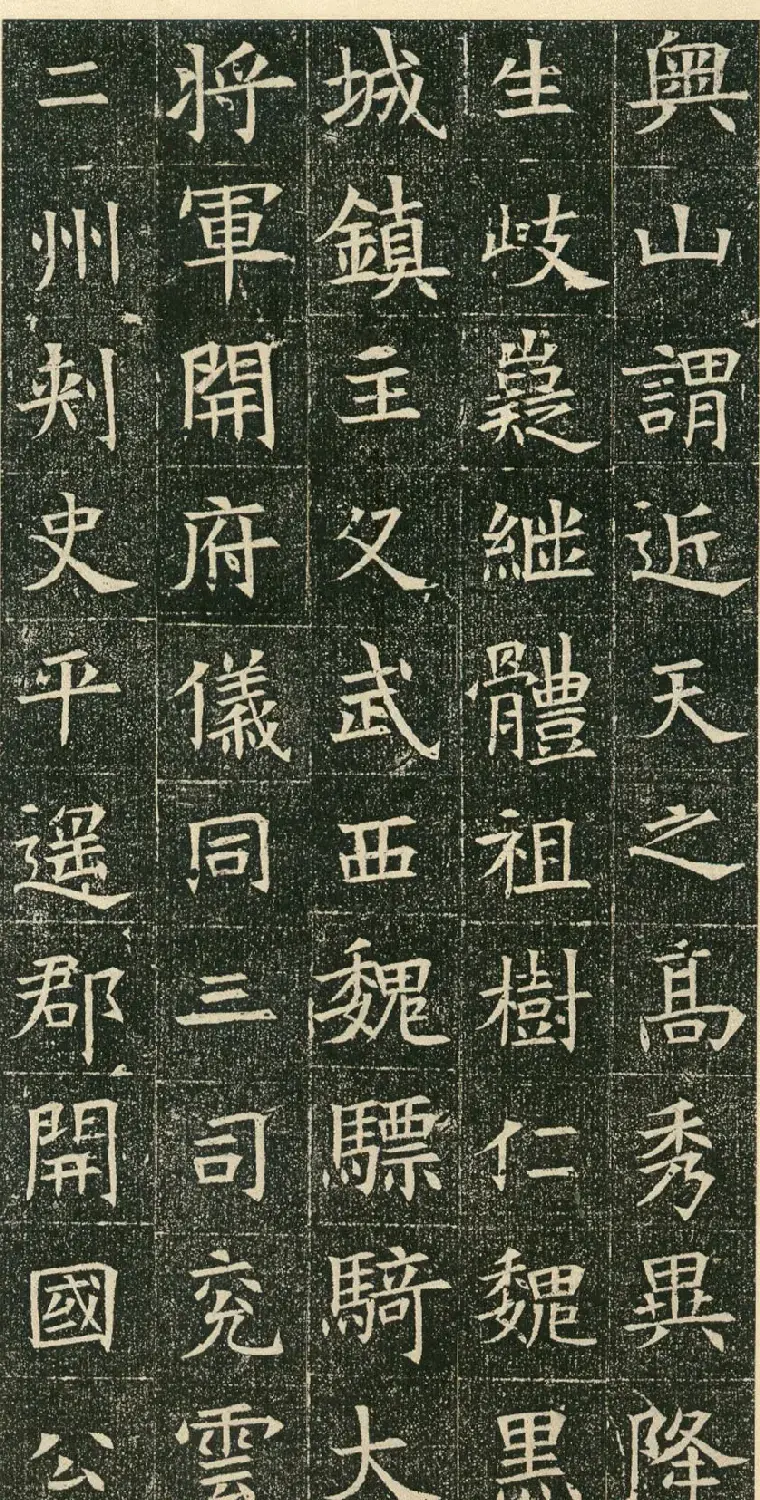 輿山謂近天之高秀異降
生岐嶷継體祖樹仁魏黑
城鎮主父武西魏驃騎大
將軍開府儀同三司兖雲
二州刾史平遥郡開國公